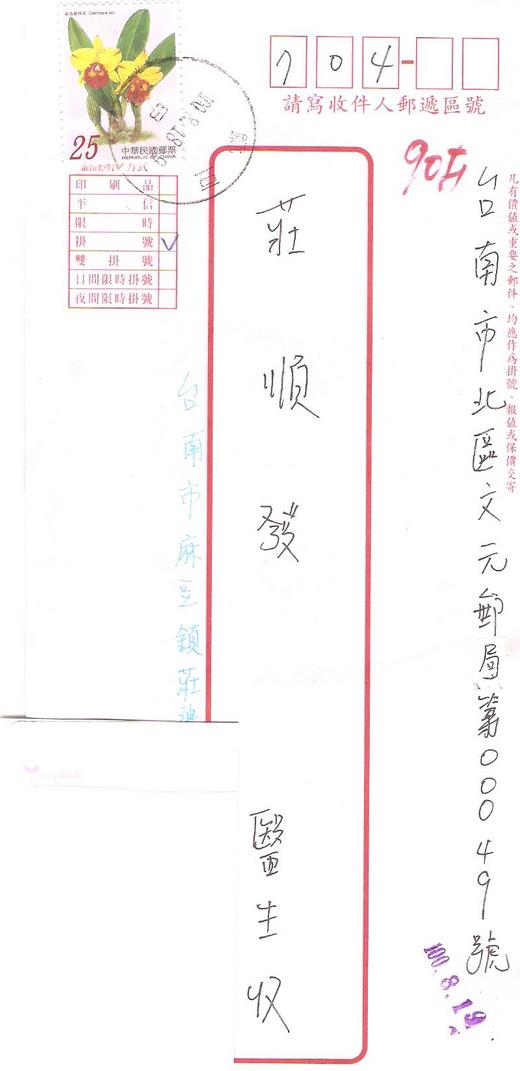 凡有價值或重要之郵件、均應作為掛號、報值或保價交寄
704-
請寫收件人郵遞區號
台南市北區文元郵局第00049號
100.8.19
莊順發 醫生收
25
中華民國郵票
REPUBLIC OF CHINA
印刷品
平信
限時
掛號 V
雙掛號
日間限時掛號
夜間限時掛號
台南市麻豆鎮莊